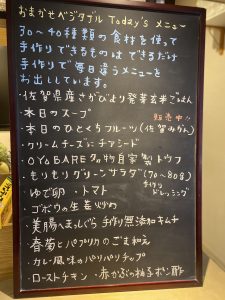 おまかせベジタブル Today's メニュー
30～40種類の食材を使って
手作りできるものはできるだけ
手作りで毎日違うメニューを
お出ししています。
・佐賀県産さがびより発芽玄米ごはん
・本日のスープ
販売中!!
・本日のひとくちフルーツ(佐賀みかん)
・クリームチーズにチャツネ
・OYOBARE名物自家製トウフ
・もりもりグリーンサラダ(70～80g)
手作りドレッシング
・ゆで卵 ・トマト
・ゴボウの生姜炒め
・美腸へまっしぐら 手作り無添加キムチ
・春菊とパプリカのごま和え
・カレー風味のパリパリチップ
・ローストチキン ・赤かぶの柚子ポン酢